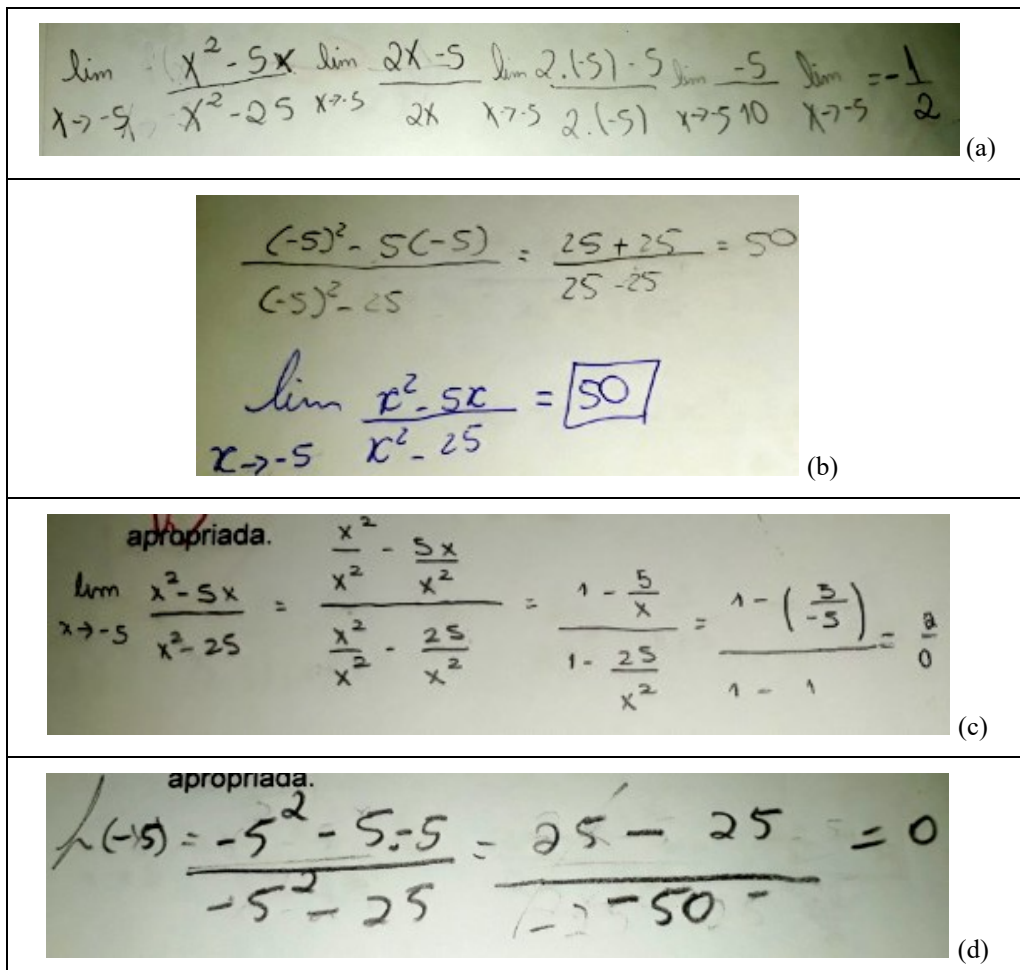 lim x→-5 x² - 5x / x² - 25 lim x→-5 2x - 5 / 2x lim x→-5 2.(-5) - 5 / 2.(-5) lim x→-5 -5 / 10 lim x→-5 = -1/2
(a)
(-5)² - 5(-5) / (-5)² - 25 = 25 + 25 / 25 - 25 = 50
lim x→-5 x² - 5x / x² - 25 = 50
(b)
apropriada.
lim x→-5 x² - 5x / x² - 25 = x²/x² - 5x/x² / x²/x² - 25/x² = 1 - 5/x / 1 - 25/x² = 1 - (5/-5) / 1 - 1 = 2/0
(c)
apropriada.
h(-5) = -5² - 5.-5 / -5² - 25 = 25 - 25 / -50 = 0
(d)